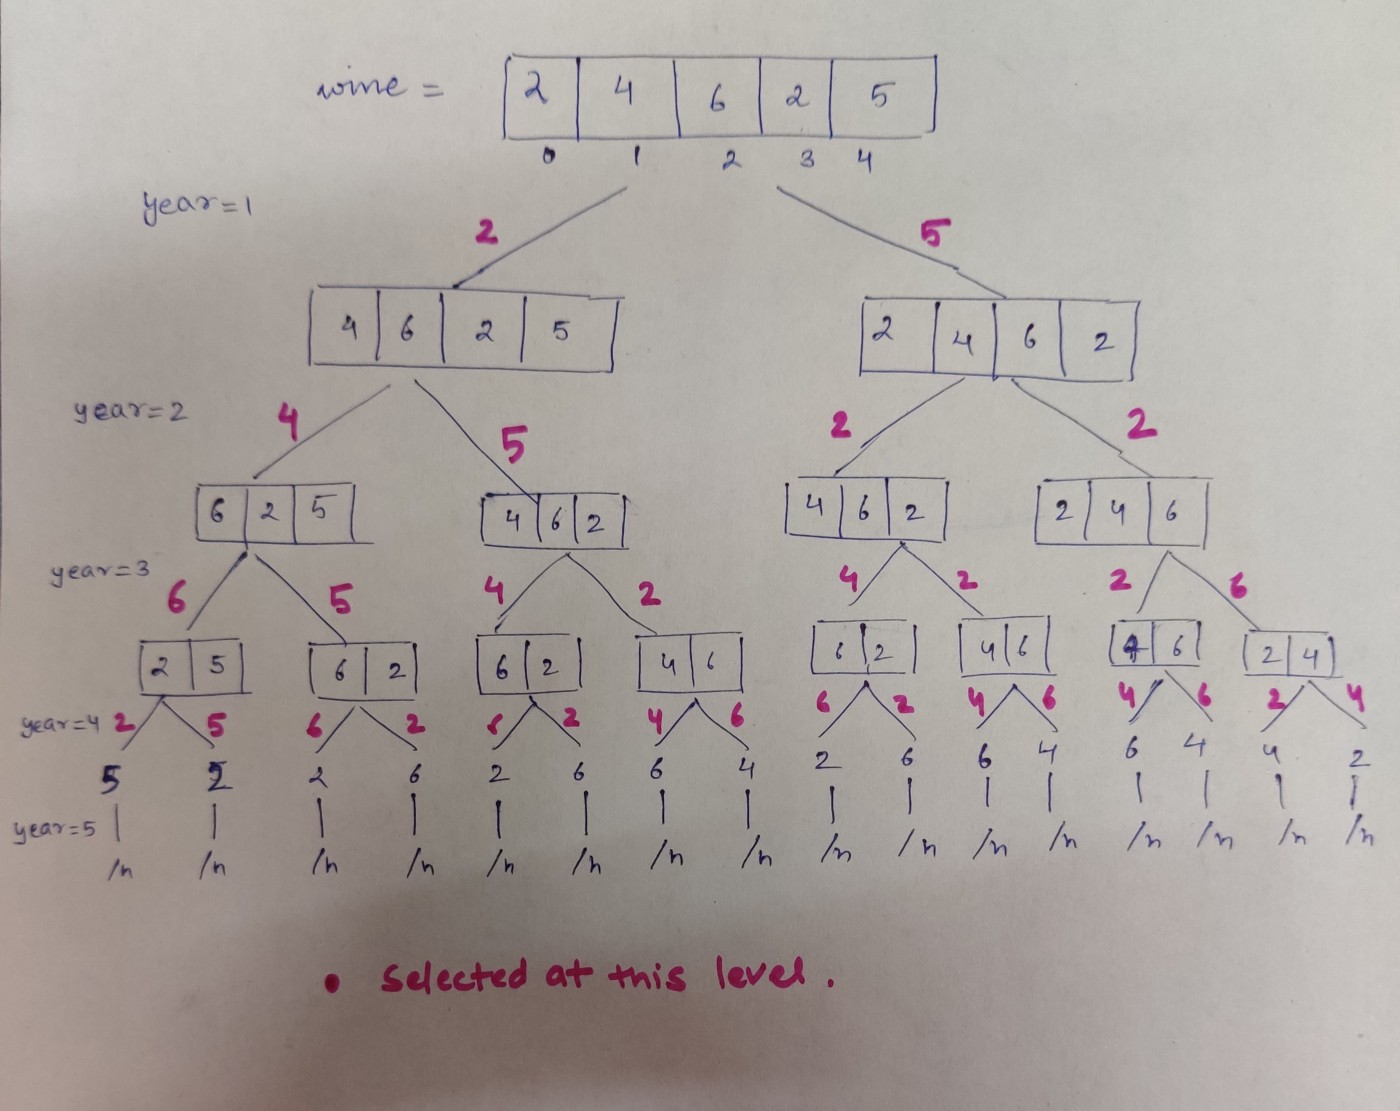 wine = 2 4 6 2 5
0 1 2 3 4
year=1
2 5
4 6 2 5 2 4 6 2
year=2
4 5 2 2
6 2 5 4 6 2 4 6 2 2 4 6
year=3
6 5 4 2 4 2 2 6
2 5 6 2 6 2 4 6 6 2 4 6 4 6 2 4
year=4 2 5 6 2 2 4 6 6 2 4 6 4 6 2 4
5 2 2 6 2 6 6 4 2 6 6 4 6 4 4 2
year=5
/n /n /n /n /n /n /n /n /n /n /n /n /n /n /n /n
• Selected at this level.